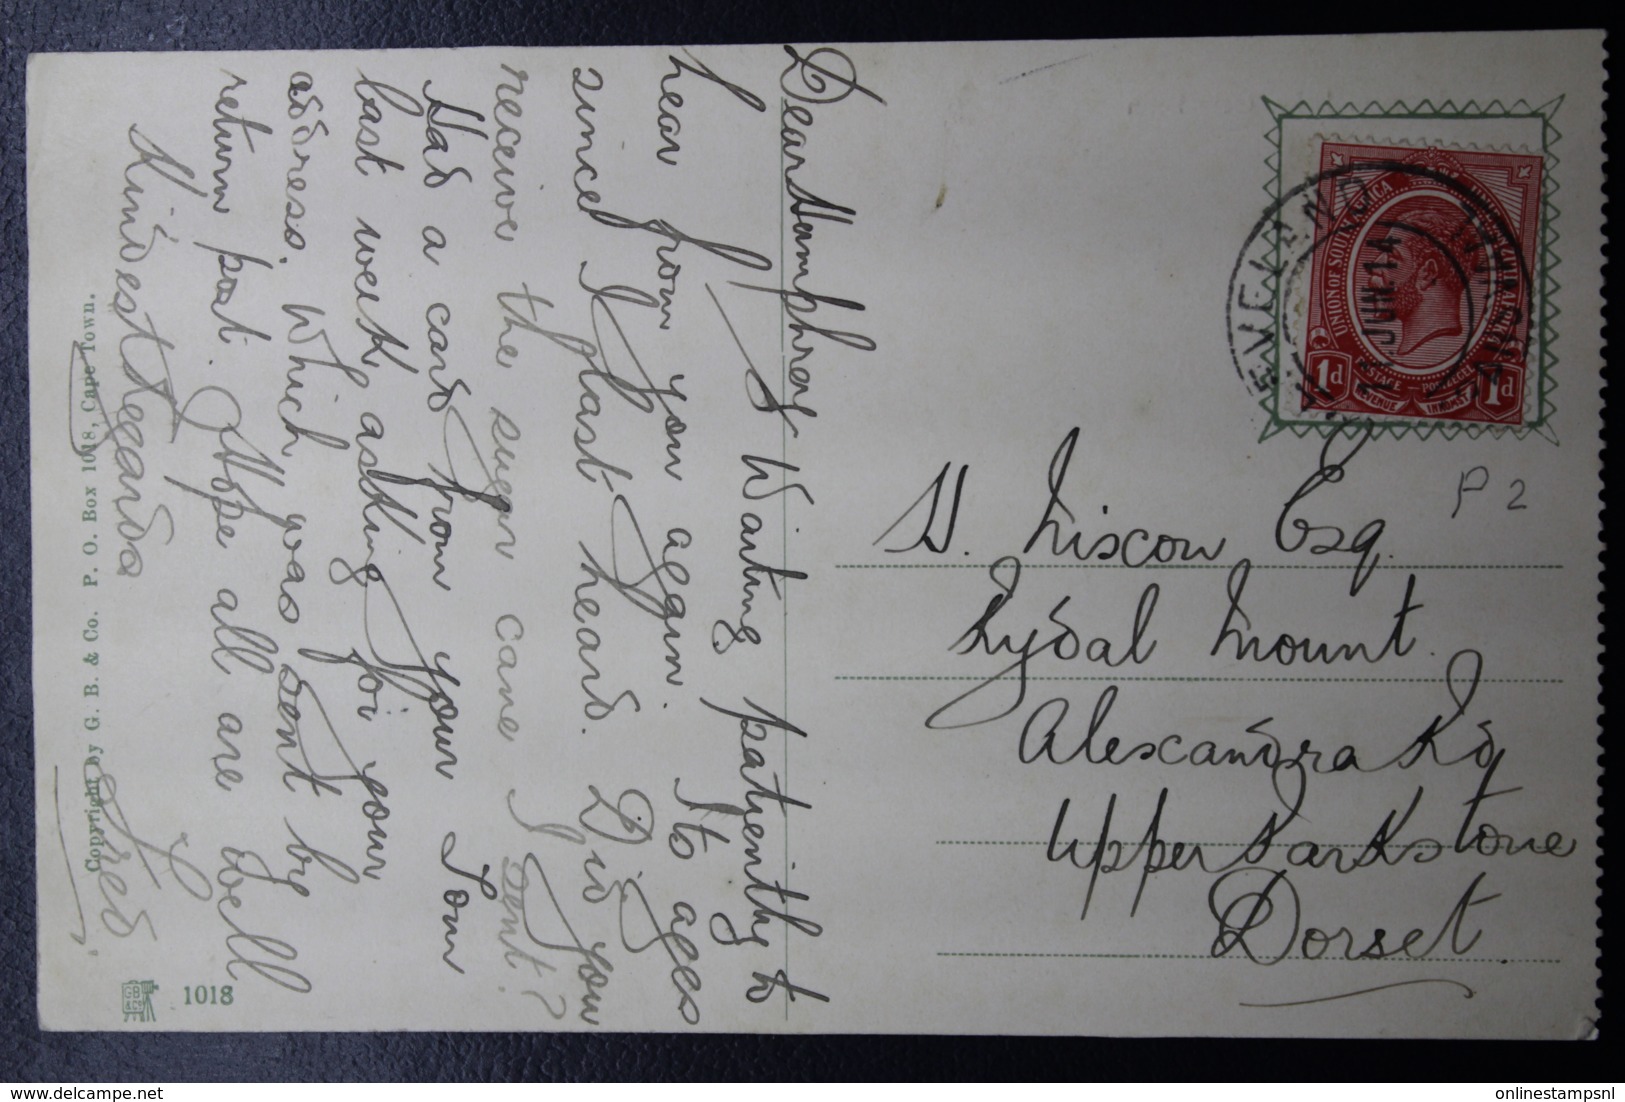 Dear Humphrey
Waiting patiently to
hear from you again. Its ages
since I last heard. Did you
receive the sugar cane I sent?
Had a card from your Tom
last week, asking for your
address. Which was sent by
return post. Hope all are well
Kindest Regards
Fred.
H. Liscow Esq.
Rydal Mount.
Alexandra Rd
Upper Parkstone
Dorset.
P 2
UNION OF SOUTH AFRICA
1d
1d
POSTAGE POSTZEGEL
REVENUE INKOMST
JUN 14
Copyright by G. B. & Co. P. O. Box 1018, Cape Town.
GB & Co
1018
onlinestampsnl